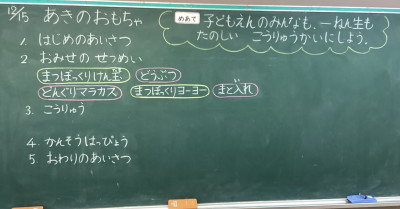 12/15 あきのおもちゃ
めあて 子どもえんのみんなも、一ねん生も
たのしい こうりゅうかいにしよう。
1. はじめのあいさつ
2. おみせの せつめい
まつぼっくりけん玉 どうぶつ
どんぐりマラカス まつぼっくりヨーヨー まと入れ
3. こうりゅう
4. かんそうはっぴょう
5. おわりのあいさつ